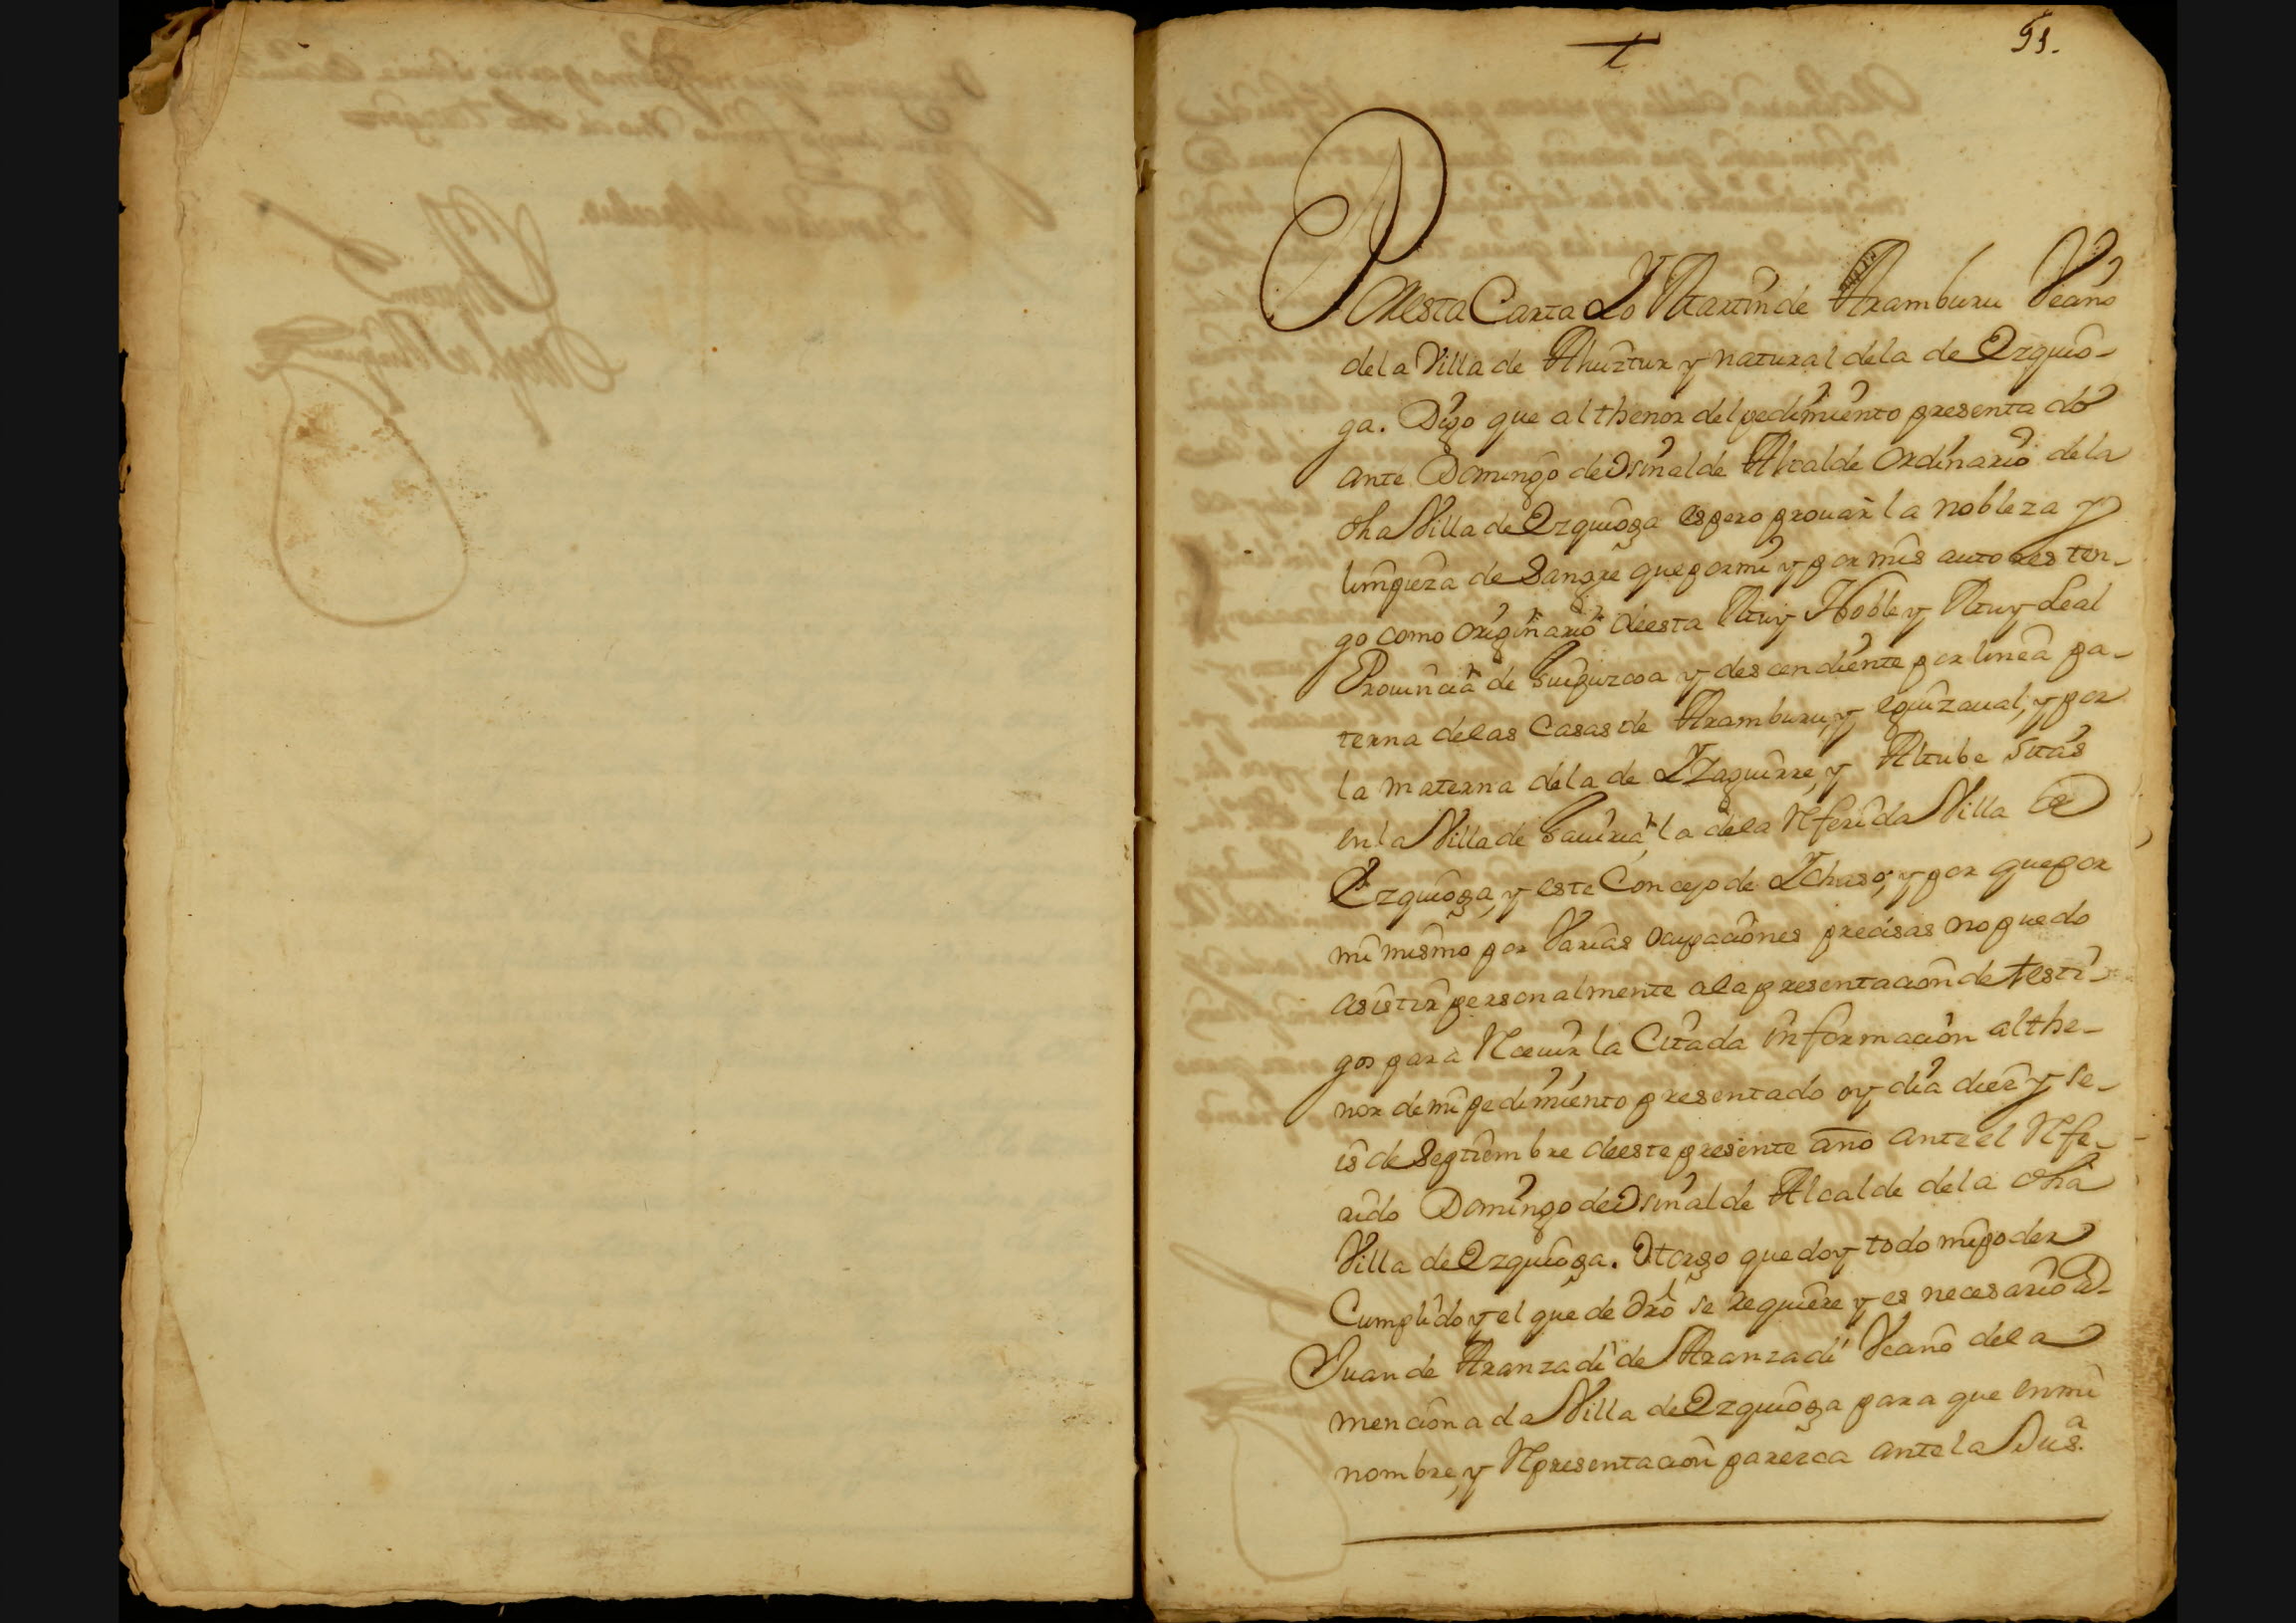 91.
Por esta Carta Yo Martin de Aramburu Veciño
de la Villa de Alviztur y natural de la de Ezquio-
ga. Digo que al thenor del pedimiento presentado
ante Domingo de Osinalde Alcalde Ordinario de la
dha Villa de Ezquioga espero provar la nobleza y
limpieza de Sangre que por mi y por mis autores ten-
go como originario de esta Muy Noble y Muy Leal
Provincia de Guipuzcoa y descendiente por linea pa-
terna de las Casas de Aramburu, y eguizaval, y por
la materna de la de Yzaguirre, y Altube sitas
en la Villa de Gaviria, la de la Referida Villa de
Ezquioga, y este Concejo de Ychaso; y por que por
mi mismo por Varias Ocupaciones precisas no puedo
asistir personalmente a la presentacion de testi-
gos para Recivir la Citada informacion al the-
nor de mi pedimiento presentado oy dia diez y se-
is de Septiembre de este presente año ante el Refe-
rido Domingo de Osinalde Alcalde de la dha
Villa de Ezquioga. Otorgo que doy todo mi poder
Cumplido y el que de dro se requiere y es necesario a
Juan de Aranzadi de Aranzadi Vecino de la
mencionada Villa de Ezquioga para que en mi
nombre, y Representacion parezca ante la Jus.a